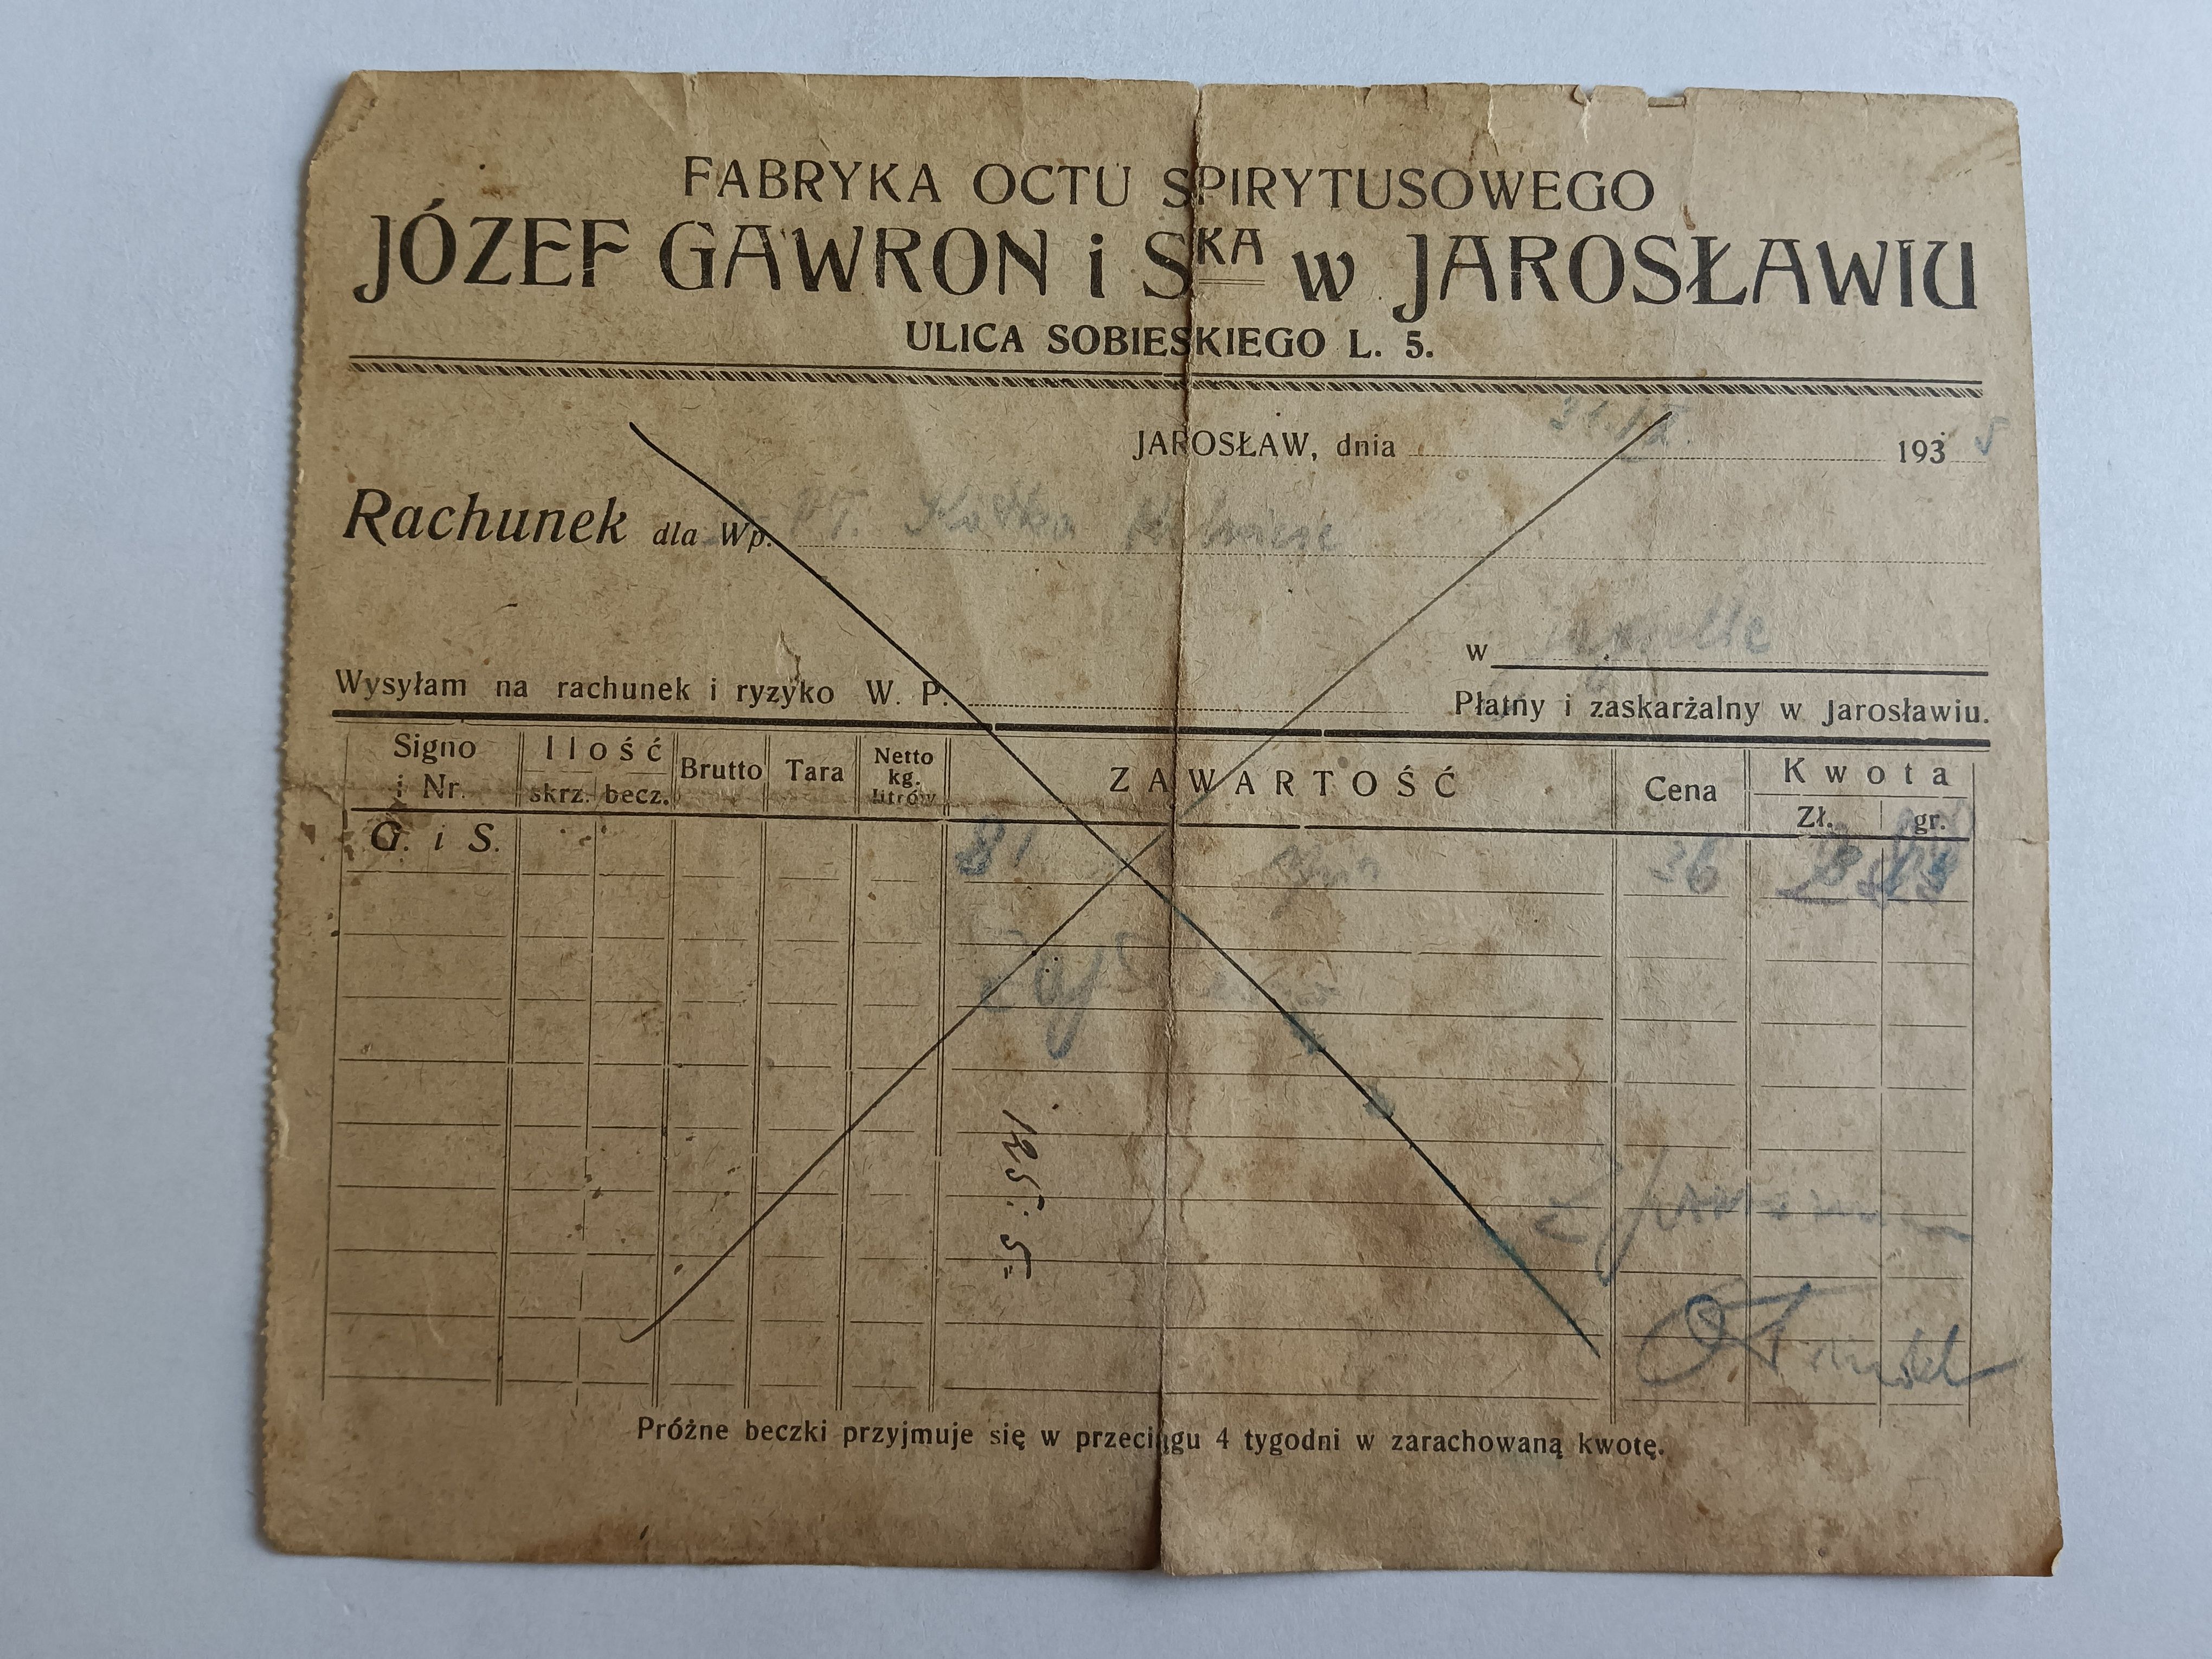 FABRYKA OCTU SPIRYTUSOWEGO
JÓZEF GAWRON i SKA w JAROSŁAWIU
ULICA SOBIESKIEGO L. 5.
JAROSŁAW, dnia 193 5
Rachunek dla Wp. PT. Kółko Rolnicze
w
Wysyłam na rachunek i ryzyko W. P. Płatny i zaskarżalny w Jarosławiu.
Signo i Nr. Ilość skrz. becz. Brutto Tara Netto kg. litrów ZAWARTOŚĆ Cena Kwota Zł. gr.
G. i S. 81 36
125: 5
Próżne beczki przyjmuje się w przeciągu 4 tygodni w zarachowaną kwotę.